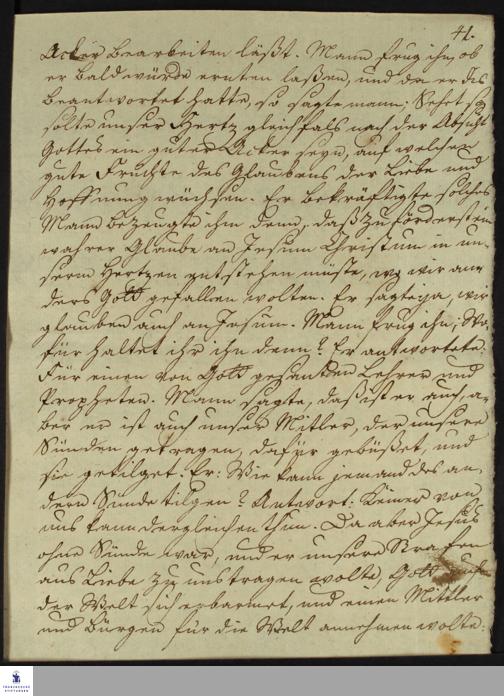 41.
Acker bearbeiten läßt. Mann frug ihn, ob
er bald würde ernten laßen, und da er das
beantwortet hatte, so sagte mann: Sehet so
solte unser Hertz gleichfals nach der Absicht
Gottes ein guter Acker seyn, auf welchen
gute Früchte des Glaubens der Liebe und
Hoffnung wüchsen. Er bekräftigte solches
Mann bezeugte ihm denn, daß zuförderst ein
wahrer Glaube an Jesum Christum in un-
serm Hertzen entstehen müste, wo wir an
ders Gott gefallen wolten. Er sagte: ja, wir
glauben auch an Jesum. Mann frug ihn, Wo
für haltet ihr ihn denn? Er antwortete:
Für einen von Gott gesandten Lehrer und
Propheten. Mann sagte, daß ist er auch, a-
ber er ist auch unser Mitler, der unsere
Sünden getragen, dafür gebüßet, und
sie getilget. Er: Wie kann jemand des an,
dern Sünde tilgen? Antwort: Keiner von
uns kann dergleichen thun. Da aber Jesus
ohne Sünde war, und er unsere Strafen
aus Liebe zu uns tragen wolte, Gott
der Welt sich erbarmet, und einen Mittler
und Bürgen für die Welt annehmen wolte:
FRANCKESCHE
STIFTUNGEN